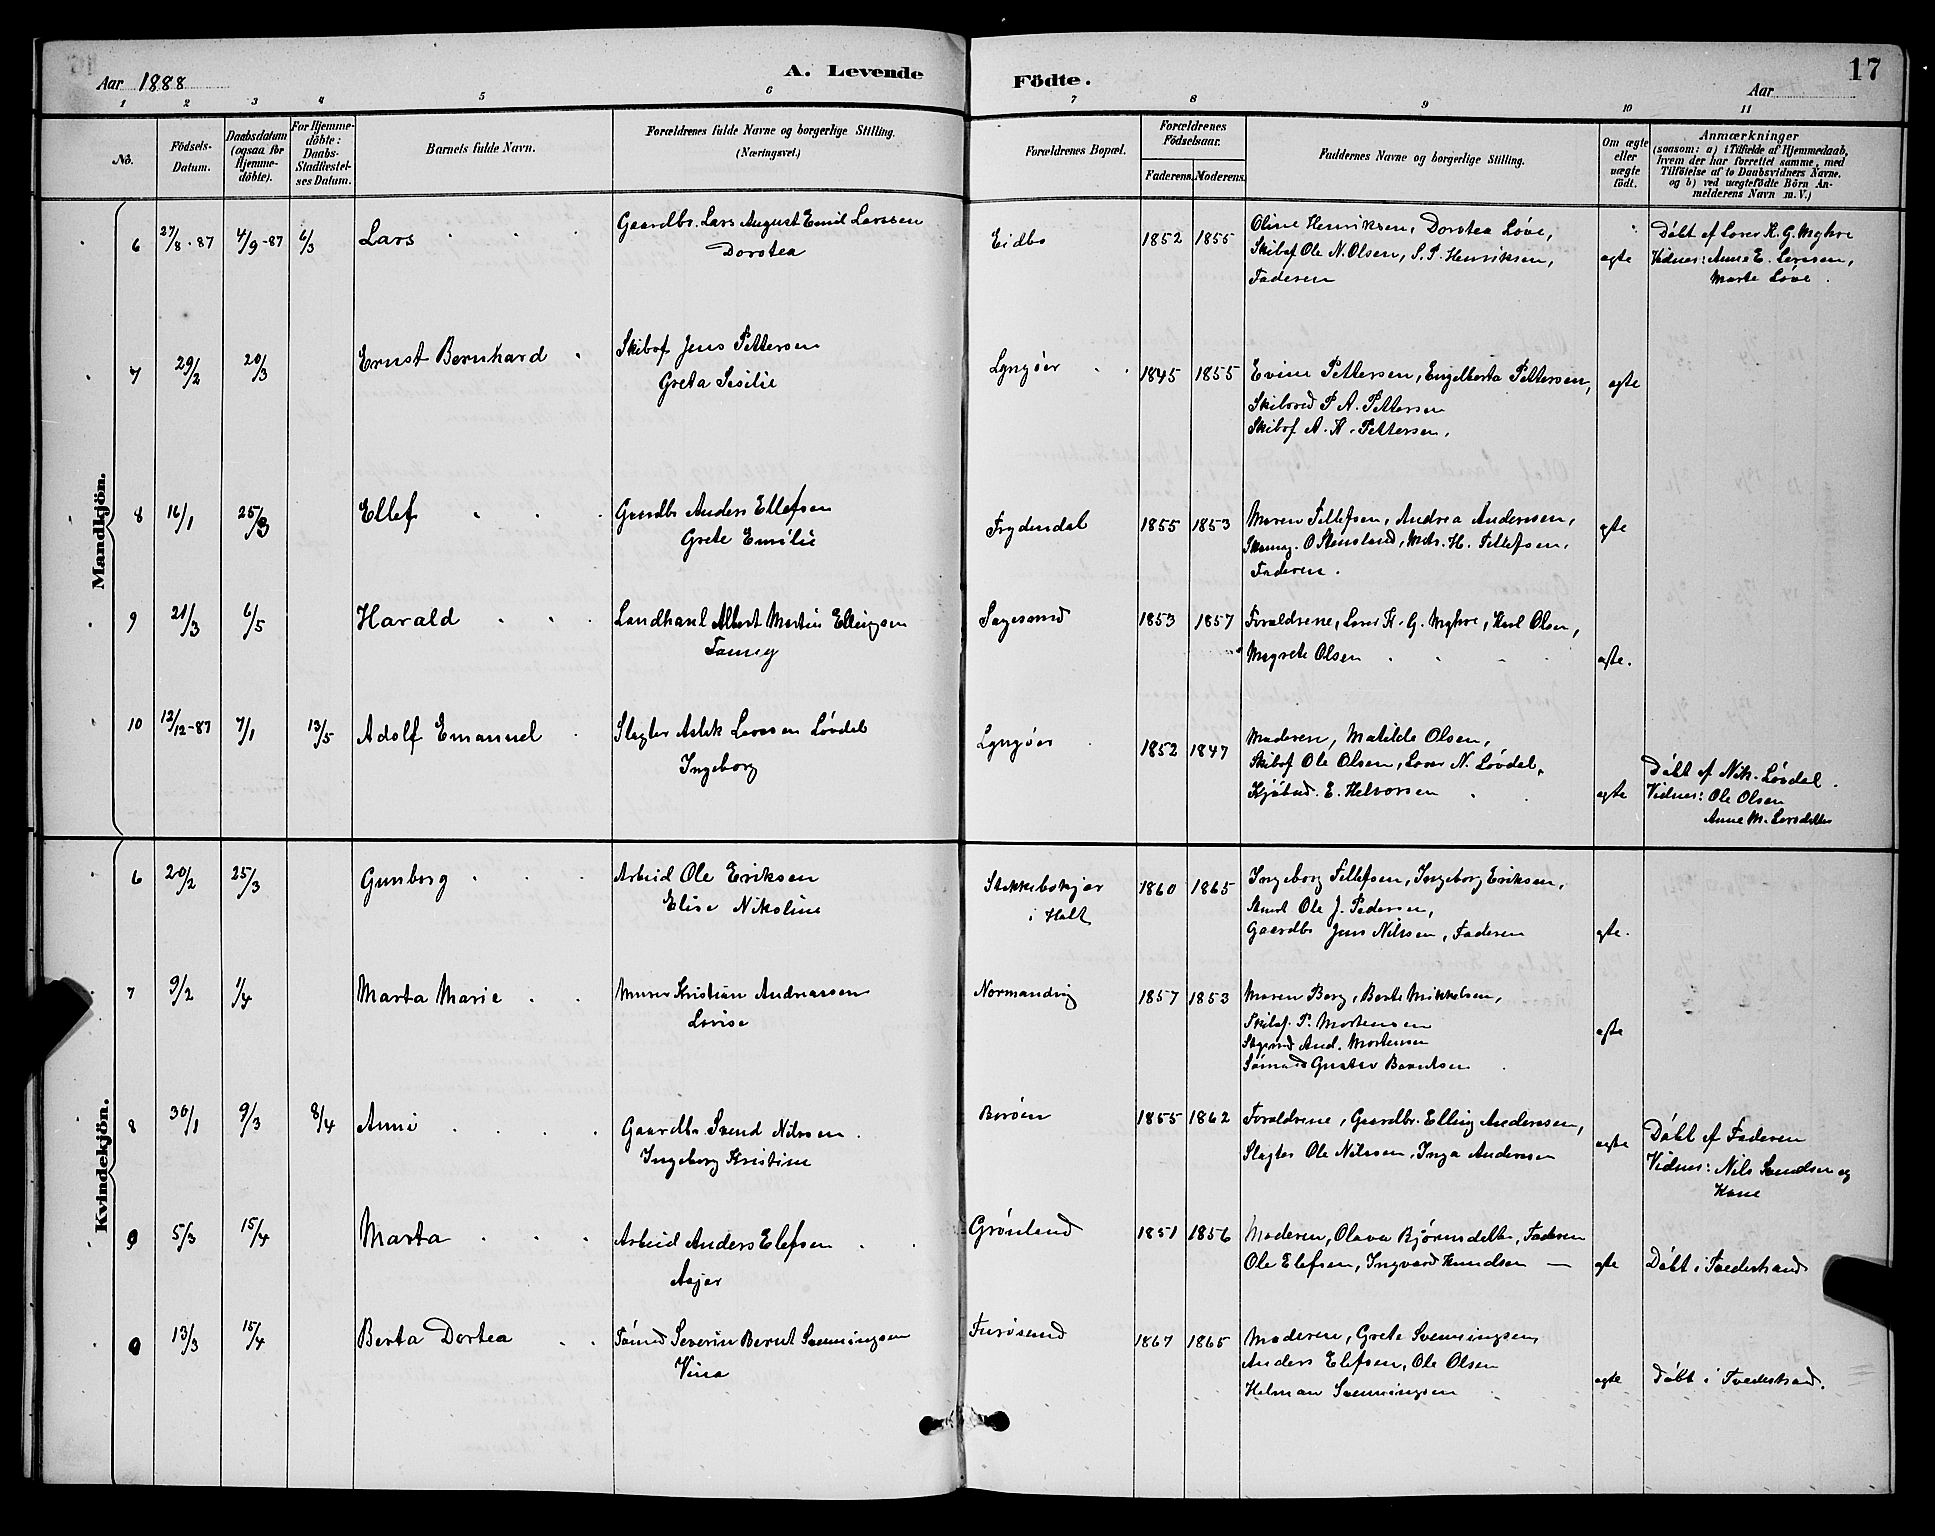 Aar 1888
A. Levende
Födte.
Aar
17
1 2 3 4 5 6 7 8 9 10 11
No.
Födsels-
Datum.
Daabsdatum
(ogsaa for
Hjemme-
döbte).
For Hjemme-
döbte:
Daabs-
Stadfæstel-
ses Datum.
Barnets fulde Navn.
Forældrenes fulde Navne og borgerlige Stilling.
(Næringsvei.)
Forældrenes Bopæl.
Forældrenes
Födselsaar.
Faderens. Moderens.
Faddernes Navne og borgerlige Stilling.
Om ægte
eller
uægte
födt.
Anmærkninger
(saasom: a) i Tilfælde af Hjemmedaab,
hvem der har forrettet samme, med
Tilföielse af to Daabsvidners Navne.
og b) ved uægtefödte Börn An-
melderens Navn m. V.)
Mandkjön.
6 27/8-87 4/9-87 6/3 Lars
Gaardbr. Lars August Emil Larssen
Dorotea
Eidbo 1852 1855
Oline Henriksen, Dorotea Løve,
Skibsf Ole N. Olsen, S. P. Henriksen,
Faderen
ægte
Døbt af Lærer K. G. Myhre
Vidner: Anne E. Larssen,
Marte Løve.
7 29/2 20/3 Ernst Bernhard
Skibsf Jens Pettersen
Greta Sesilie
Lyngøer 1845 1855
Evine Pettersen, Engelberta Pettersen,
Skibsred P A. Pettersen
Skibsf A. K. Pettersen.
ægte
8 16/1 25/3 Ellef
Gaardb Anders Ellefsen
Grete Emilie
Frydendal 1855 1853
Maren Tellefsen, Andrea Anderssen,
O Stensland, H. Tellefsen,
Faderen.
ægte
9 21/3 6/5 Harald
Landhanl Albert Martin Ellingsen
Fanny
Sagesund 1853 1857
Forældrene, Lærer K. G. Myhre, Karl Olsen,
Magrete Olsen
ægte.
10 12/12-87 7/1 13/5 Adolf Emanuel
Slagter Aslak Larssen Løvdal
Ingeborg
Lyngøer 1852 1847
Moderen, Matilde Olsen,
Skibsf Ole Olsen, Lærer N. Løvdal,
E. Helvorsen
ægte
Døbt af Nik. Løvdal.
Vidner: Ole Olsen
Anne M. Larsdatter
Kvindekjön.
6 20/2 25/3 Gunborg
Arbeid Ole Eriksen
Elise Nikoline
i Holt
1860 1865
Ingeborg Tellefsen, Ingeborg Eriksen,
Ole J. Pedersen,
Gaardbr Jens Nilssen, Faderen
ægte.
7 9/2 1/4 Marta Marie
Murer Kristian Andreassen
Lovise
Normandvig 1857 1853
Maren Berg, Berte Mikkelsen,
Skibsf. P. Mortensen
And. Mortensen
Sømand Gustav Berntsen
ægte
8 30/1 9/3 8/4 Anne
Gaardbr. Svend Nilssen.
Ingeborg Kristine
Borøen 1855 1862
Forældrene, Gaardbr. Elling Anderssen,
Slagter Ole Nilssen, Inga Andersen
ægte
Døbt af Faderen
Vidner: Nils Svendsen og
Kone
9 5/3 15/4 Marta
Arbeid Anders Elefsen
Asjer
Grønland 1851 1856
Moderen, Olava Bjørnsdatter, Faderen
Ole Elefsen, Ingvard Knudsen —
ægte
Døbt i Tvedestrand
0 13/3 15/4 Berta Dortea
Sømd Severin Bernt Svenningsen
Vina
Furøsund 1867 1865
Moderen, Grete Svenningsen,
Anders Elefsen, Ole Olsen
Helman Svenningsen
ægte
Døbt i Tvedestrand.